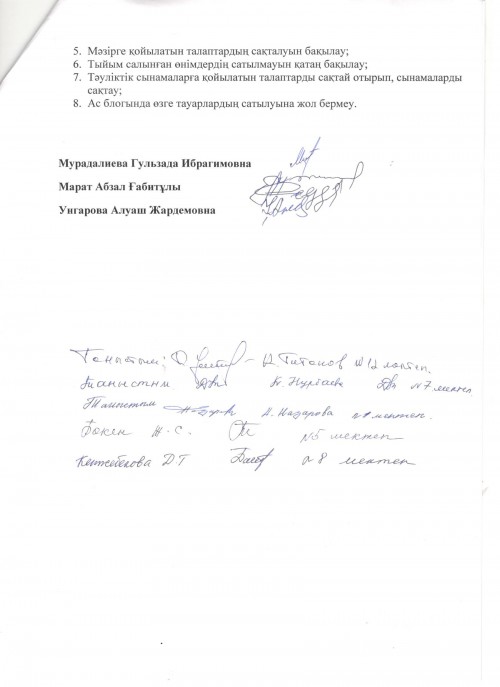 5. Мәзірге қойылатын талаптардың сақталуын бақылау;
6. Тыйым салынған өнімдердің сатылмауын қатаң бақылау;
7. Тәуліктік сынамаларға қойылатын талаптарды сақтай отырып, сынамаларды
сақтау;
8. Ас блогында өзге тауарлардың сатылуына жол бермеу.
Мурадалиева Гульзада Ибрагимовна
Марат Абзал Ғабитұлы
Унгарова Алуаш Жардемовна
Таныстым; Титанов №12
Таныстым №7 мектеп
Таныстым Назарова мектеп.
Ж. С. №5 мектеп
Д Т №8 мектеп